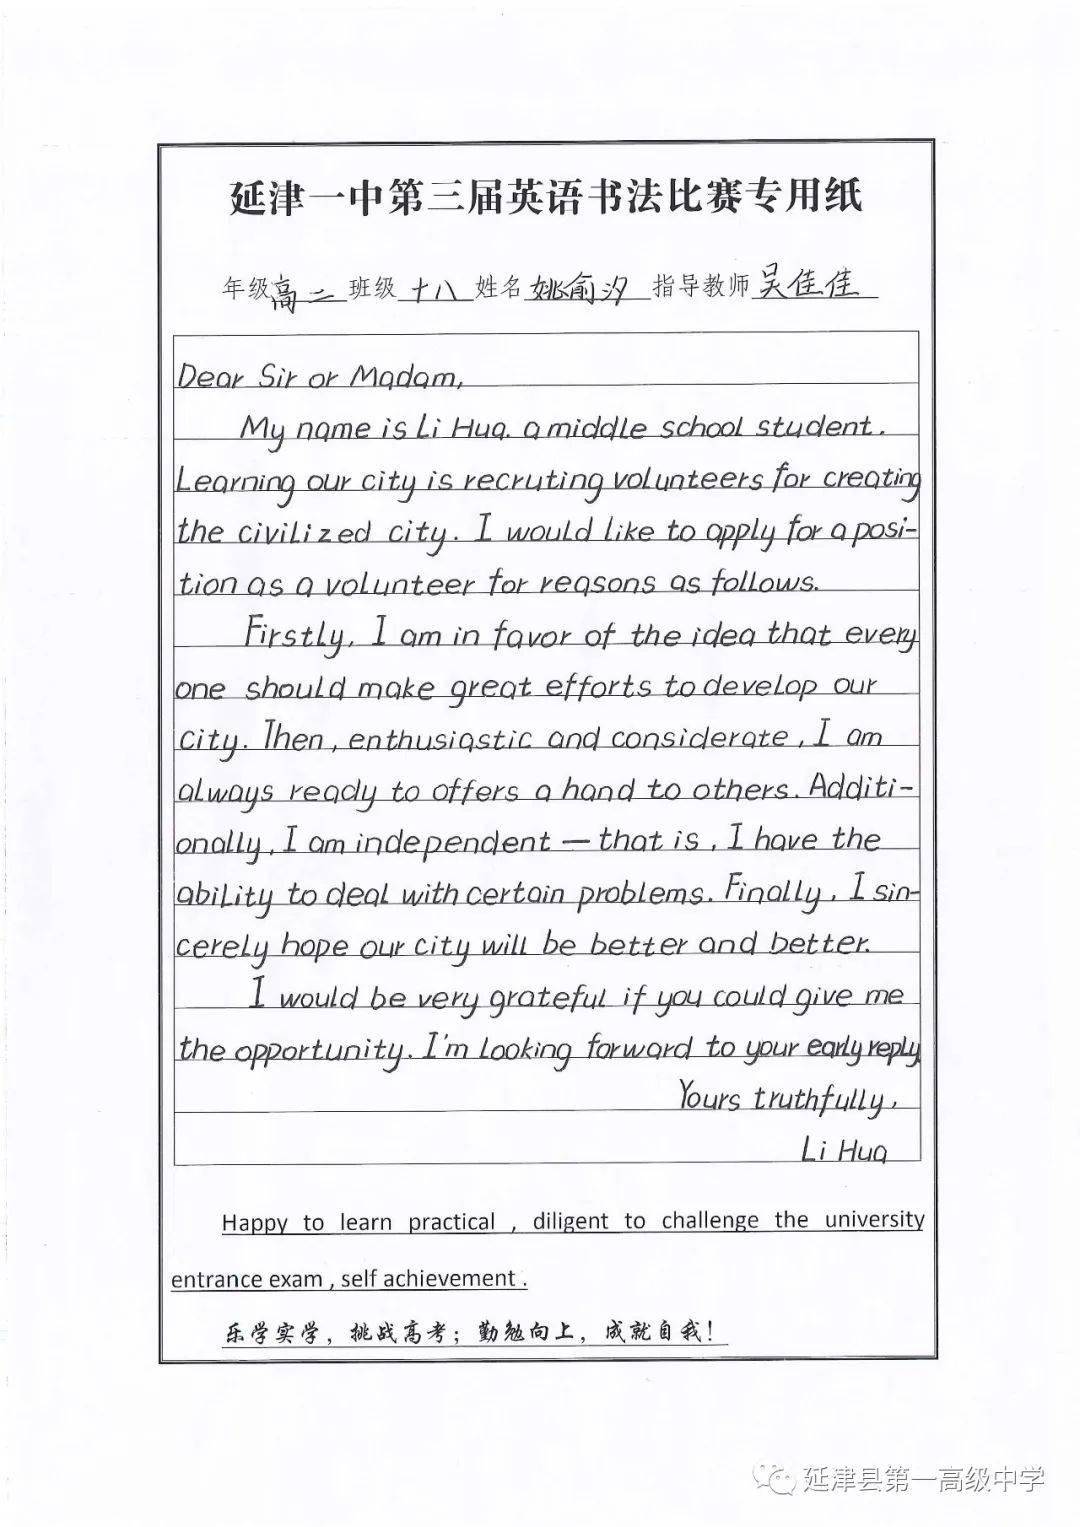 延津一中第三届英语书法比赛专用纸
年级高二班级十八姓名姚俞汐指导教师吴佳佳
Dear Sir or Madam,
My name is Li Hua. a middle school student.
Learning our city is recruting volunteers for creating
the civilized city. I would like to apply for a posi-
tion as a volunteer for reasons as follows.
Firstly, I am in favor of the idea that every
one should make great efforts to develop our
city. Then, enthusiastic and considerate, I am
always ready to offers a hand to others. Additi-
onally, I am independent — that is, I have the
ability to deal with certain problems. Finally, I sin-
cerely hope our city will be better and better.
I would be very grateful if you could give me
the opportunity. I'm looking forward to your early reply
Yours truthfully,
Li Hua
Happy to learn practical , diligent to challenge the university
entrance exam , self achievement .
乐学实学，挑战高考；勤勉向上，成就自我！
延津县第一高级中学